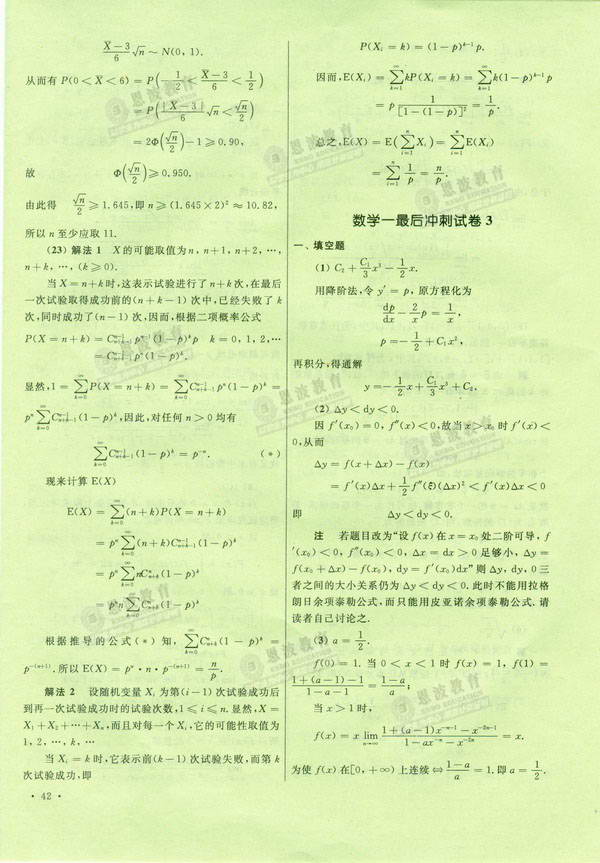 (X̄−3)/6 √n ~ N(0, 1).
从而有 P(0 < X̄ < 6) = P(−1/2 < (X̄−3)/6 < 1/2)
= P(|X̄−3|/6 √n < √n/2)
= 2Φ(√n/2) − 1 ≥ 0.90,
故 Φ(√n/2) ≥ 0.950.
由此得 √n/2 ≥ 1.645, 即 n ≥ (1.645×2)² ≈ 10.82,
所以 n 至少应取 11.
(23) 解法 1 X 的可能取值为 n, n+1, n+2, …,
n+k, …, (k ≥ 0).
当 X = n+k 时, 这表示试验进行了 n+k 次, 在最后
一次试验取得成功前的 (n+k−1) 次中, 已经失败了 k
次, 同时成功了 (n−1) 次. 因而, 根据二项概率公式
P(X = n+k) = C_{n+k−1}^{n−1} p^{n−1}(1−p)^k p k = 0, 1, 2, …
= C_{n+k−1}^{n−1} p^n (1−p)^k.
显然, 1 = ∑_{k=0}^{∞} P(X = n+k) = ∑_{k=0}^{∞} C_{n+k−1}^{n−1} p^n (1−p)^k =
p^n ∑_{k=0}^{∞} C_{n+k−1}^{n−1} (1−p)^k, 因此, 对任何 n > 0 均有
∑_{k=0}^{∞} C_{n+k−1}^{n−1} (1−p)^k = p^{−n}. (*)
现来计算 E(X)
E(X) = ∑_{k=0}^{∞} (n+k)P(X = n+k)
= p^n ∑_{k=0}^{∞} (n+k)C_{n+k−1}^{n−1} (1−p)^k
= p^n ∑_{k=0}^{∞} nC_{n+k}^{n} (1−p)^k
= p^n n ∑_{k=0}^{∞} C_{n+k}^{n} (1−p)^k
根据推导的公式 (*) 知, ∑_{k=0}^{∞} C_{n+k}^{n} (1−p)^k =
p^{−(n+1)}. 所以 E(X) = p^n · n · p^{−(n+1)} = n/p.
解法 2 设随机变量 X_i 为第 (i−1) 次试验成功后
到再一次试验成功时的试验次数, 1 ≤ i ≤ n. 显然, X =
X₁ + X₂ + … + X_n, 而且对每一个 X_i 它的可能性取值为
1, 2, …, k, …
当 X_i = k 时, 它表示前 (k−1) 次试验失败, 而第 k
次试验成功, 即
· 42 ·
P(X_i = k) = (1−p)^{k−1} p.
因而, E(X_i) = ∑_{k=1}^{∞} kP(X_i = k) = ∑_{k=1}^{∞} k(1−p)^{k−1} p
= p 1/[1−(1−p)]² = 1/p.
总之, E(X) = E(∑_{i=1}^{n} X_i) = ∑_{i=1}^{n} E(X_i)
= ∑_{i=1}^{n} 1/p = n/p.
数学一最后冲刺试卷 3
一、填空题
(1) C₂ + C₁/3 x³ − 1/2 x.
用降阶法, 令 y′ = p, 原方程化为
dp/dx − 2/x p = 1/x,
p = −1/2 + C₁x²,
再积分, 得通解
y = −1/2 x + C₁/3 x³ + C₂.
(2) Δy < dy < 0.
因 f′(x₀) = 0, f″(x) < 0, 故当 x > x₀ 时 f′(x) <
0, 从而
Δy = f(x+Δx) − f(x)
= f′(x)Δx + 1/2 f″(ξ)(Δx)² < f′(x)Δx < 0
即 Δy < dy < 0.
注 若题目改为“设 f(x) 在 x = x₀ 处二阶可导, f
′(x₀) < 0, f″(x₀) < 0, Δx = dx > 0 足够小, Δy =
f(x₀+Δx) − f(x₀), dy = f′(x₀)dx” 则 Δy, dy, 0 三
者之间的大小关系仍为 Δy < dy < 0. 此时不能用拉格
朗日余项泰勒公式, 而只能用皮亚诺余项泰勒公式. 请
读者自己讨论之.
(3) a = 1/2.
f(0) = 1. 当 0 < x < 1 时 f(x) = 1, f(1) =
(1+(a−1)−1)/(1−a−1) = (1−a)/a;
当 x > 1 时,
f(x) = x lim_{n→∞} (1+(a−1)x^{−n−1}−x^{−2n−1})/(1−ax^{−n}−x^{−2n}) = x.
为使 f(x) 在 [0, +∞) 上连续 ⇔ (1−a)/a = 1. 即 a = 1/2.
恩波教育